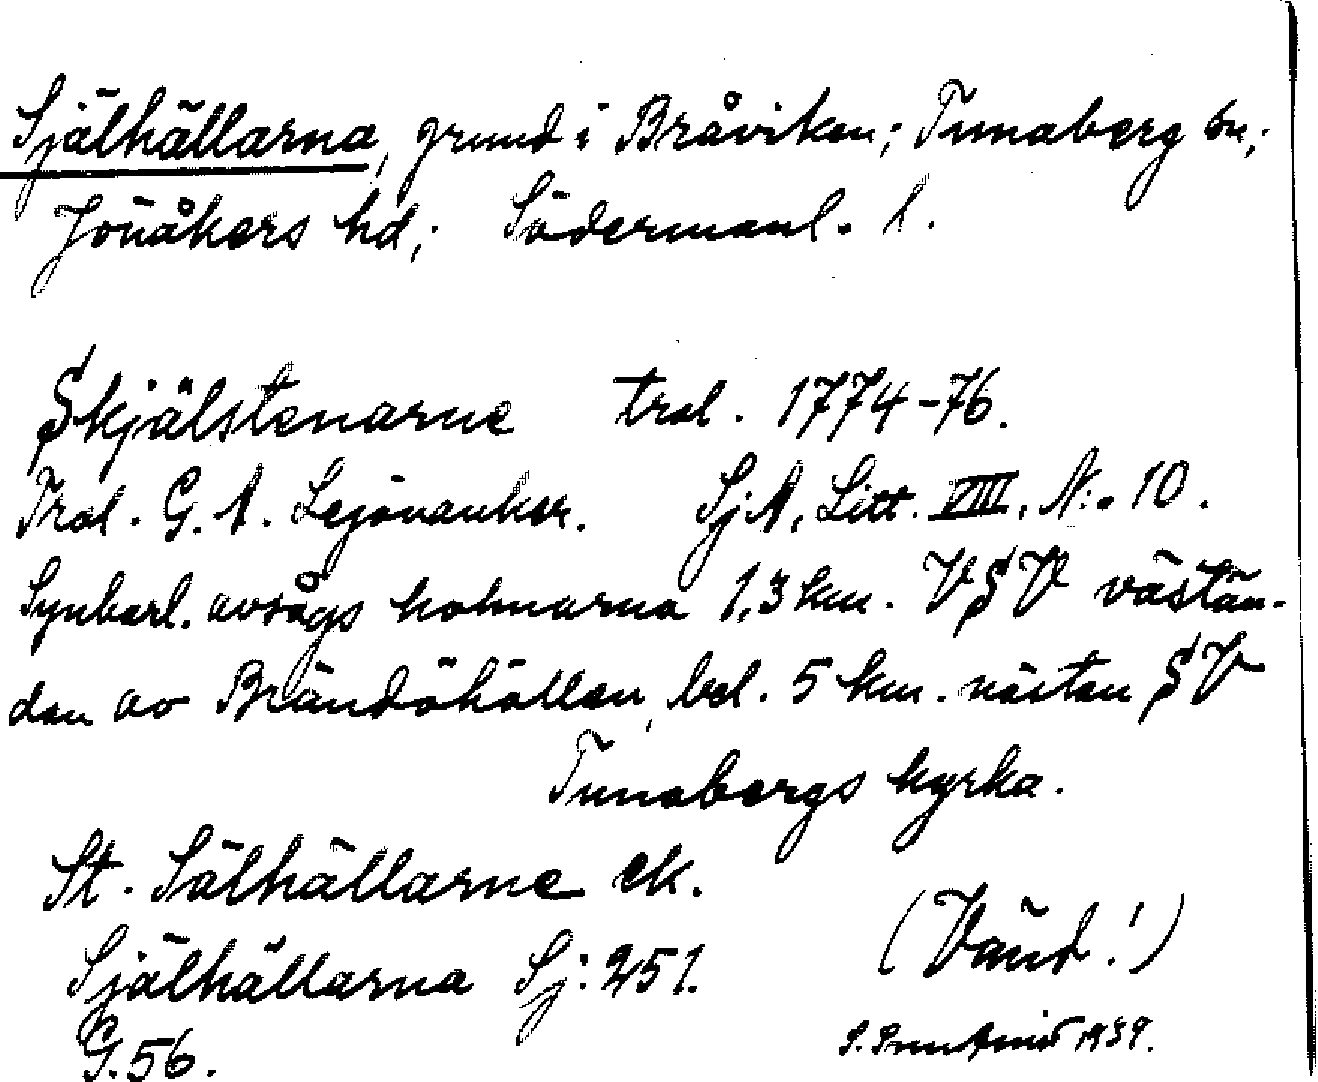 Själhällarna, grund i Bråviken; Tunaberg sn;
Jönåkers hd; Södermanl. l.
Skjälstenarne trol. 1774-76.
Trol. G. A. Lejonanker. SjA, Litt. VIII, N:o 10.
Synbarl. avsågs holmarna 1,3 km. VSV västän-
den av Brändöhällan, bel. 5 km. nästan SV
Tunabergs kyrka.
St. Sälhällarne ek.
Själhällarna Sj: 251.
G. 56.
(Vänd!)
1939.